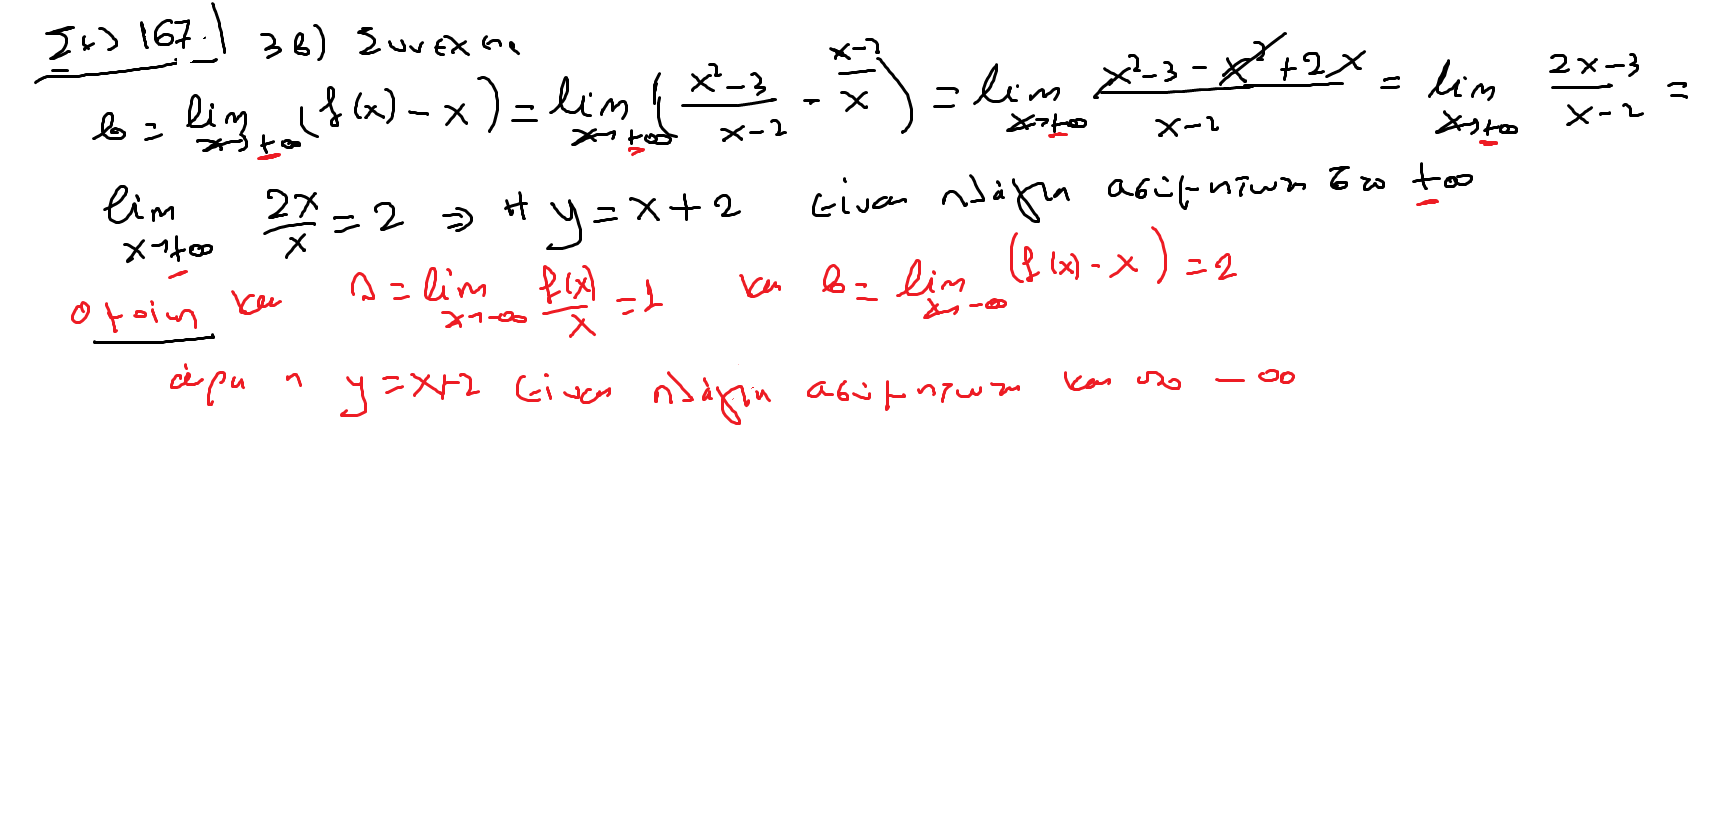 Σελ 167. 3β) Συνέχεια
β = lim x→+∞ (f(x) - x) = lim x→+∞ ( (x²-3)/(x-2) - x ) = lim x→+∞ (x²-3-x²+2x)/(x-2) = lim x→+∞ (2x-3)/(x-2) =
lim x→+∞ 2x/x = 2 ⇒ Η y = x+2 είναι πλάγια ασύμπτωτη στο +∞
Ομοίως και λ = lim x→-∞ f(x)/x = 1 και β = lim x→-∞ (f(x) - x) = 2
άρα η y = x+2 είναι πλάγια ασύμπτωτη και στο -∞